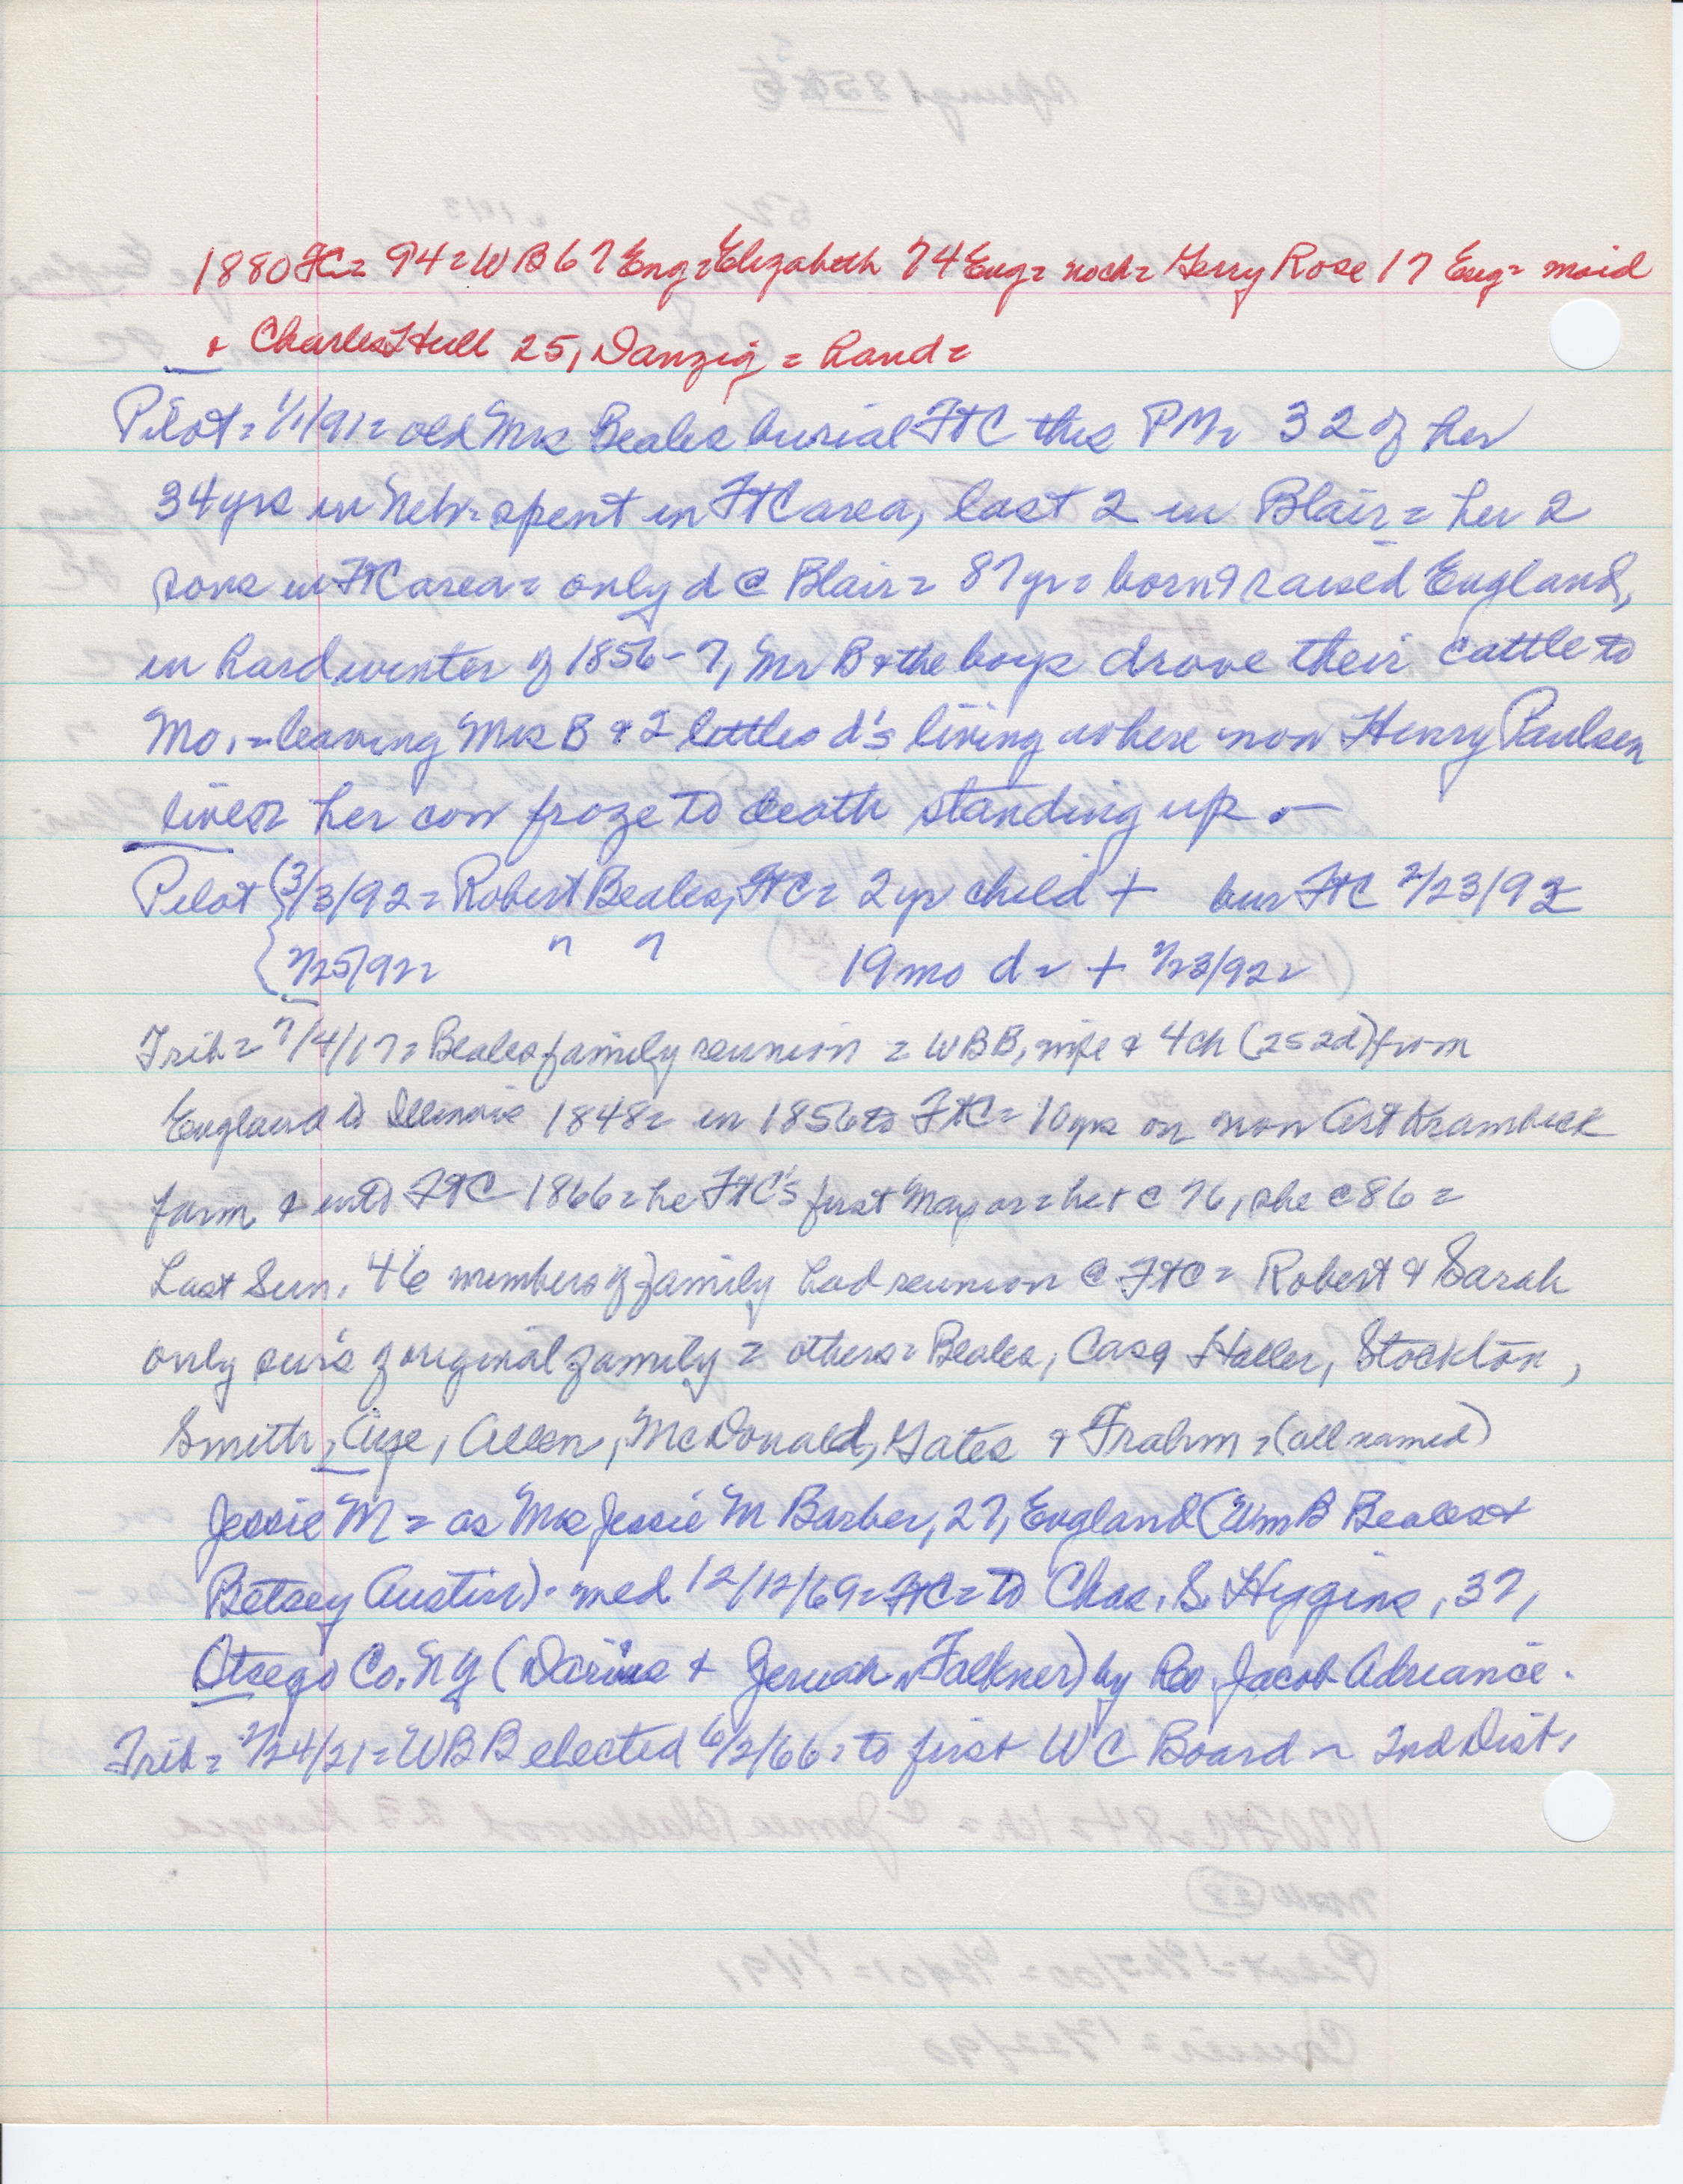 1880 FtC = 94 = WB 67 Eng = Elizabeth 74 Eng = noch = Gerry Rose 17 Eng = maid
+ Charles Hull 25, Danzig = hand =
Pilot = 1/1/91 = old Mrs Beales burial FtC this PM = 32 of her
34 yrs in Neb = spent in FtC area, last 2 in Blair = her 2
sons in FtC area = only d @ Blair = 87 yr = born & raised England,
in hard winter of 1856-7, Mr B & the boys drove their cattle to
Mo. = leaving Mrs B & 2 little d's living where now Henry Paulsen
lives = her cow froze to death standing up. —
Pilot { 3/3/92 = Robert Beales, FtC = 2 yr child + bur FtC 2/23/92
{ 2/25/92 = " " 19 mo d = + 2/23/92 =
Trib = 7/4/17 = Beales family reunion = WBB, wife & 4 ch (2s 2d) from
England to Illinois 1848 = in 1856 to FtC = 10 yrs on now Art Krambeck
farm & into FtC 1866 = he FtC's first Mayor = he + c 76, she c 86 =
Last Sun. 46 members of family had reunion @ FtC = Robert & Sarah
only surs of original family = others = Beales, Case Haller, Stockton,
Smith, Aye, Allen, McDonald, Gates & Frahm = (all named)
Jessie M = as Mrs Jessie M Barber, 27, England (Wm B Beales +
Betsey Austin) · med 12/12/69 = FtC = to Chas. S. Higgins, 37,
Otsego Co. NY (Darius + Faulkner) by Rev. Jacob Adriance.
Trib = 2/24/21 = WBB elected 6/2/66 = to first WC Board ~ 2nd Dist.